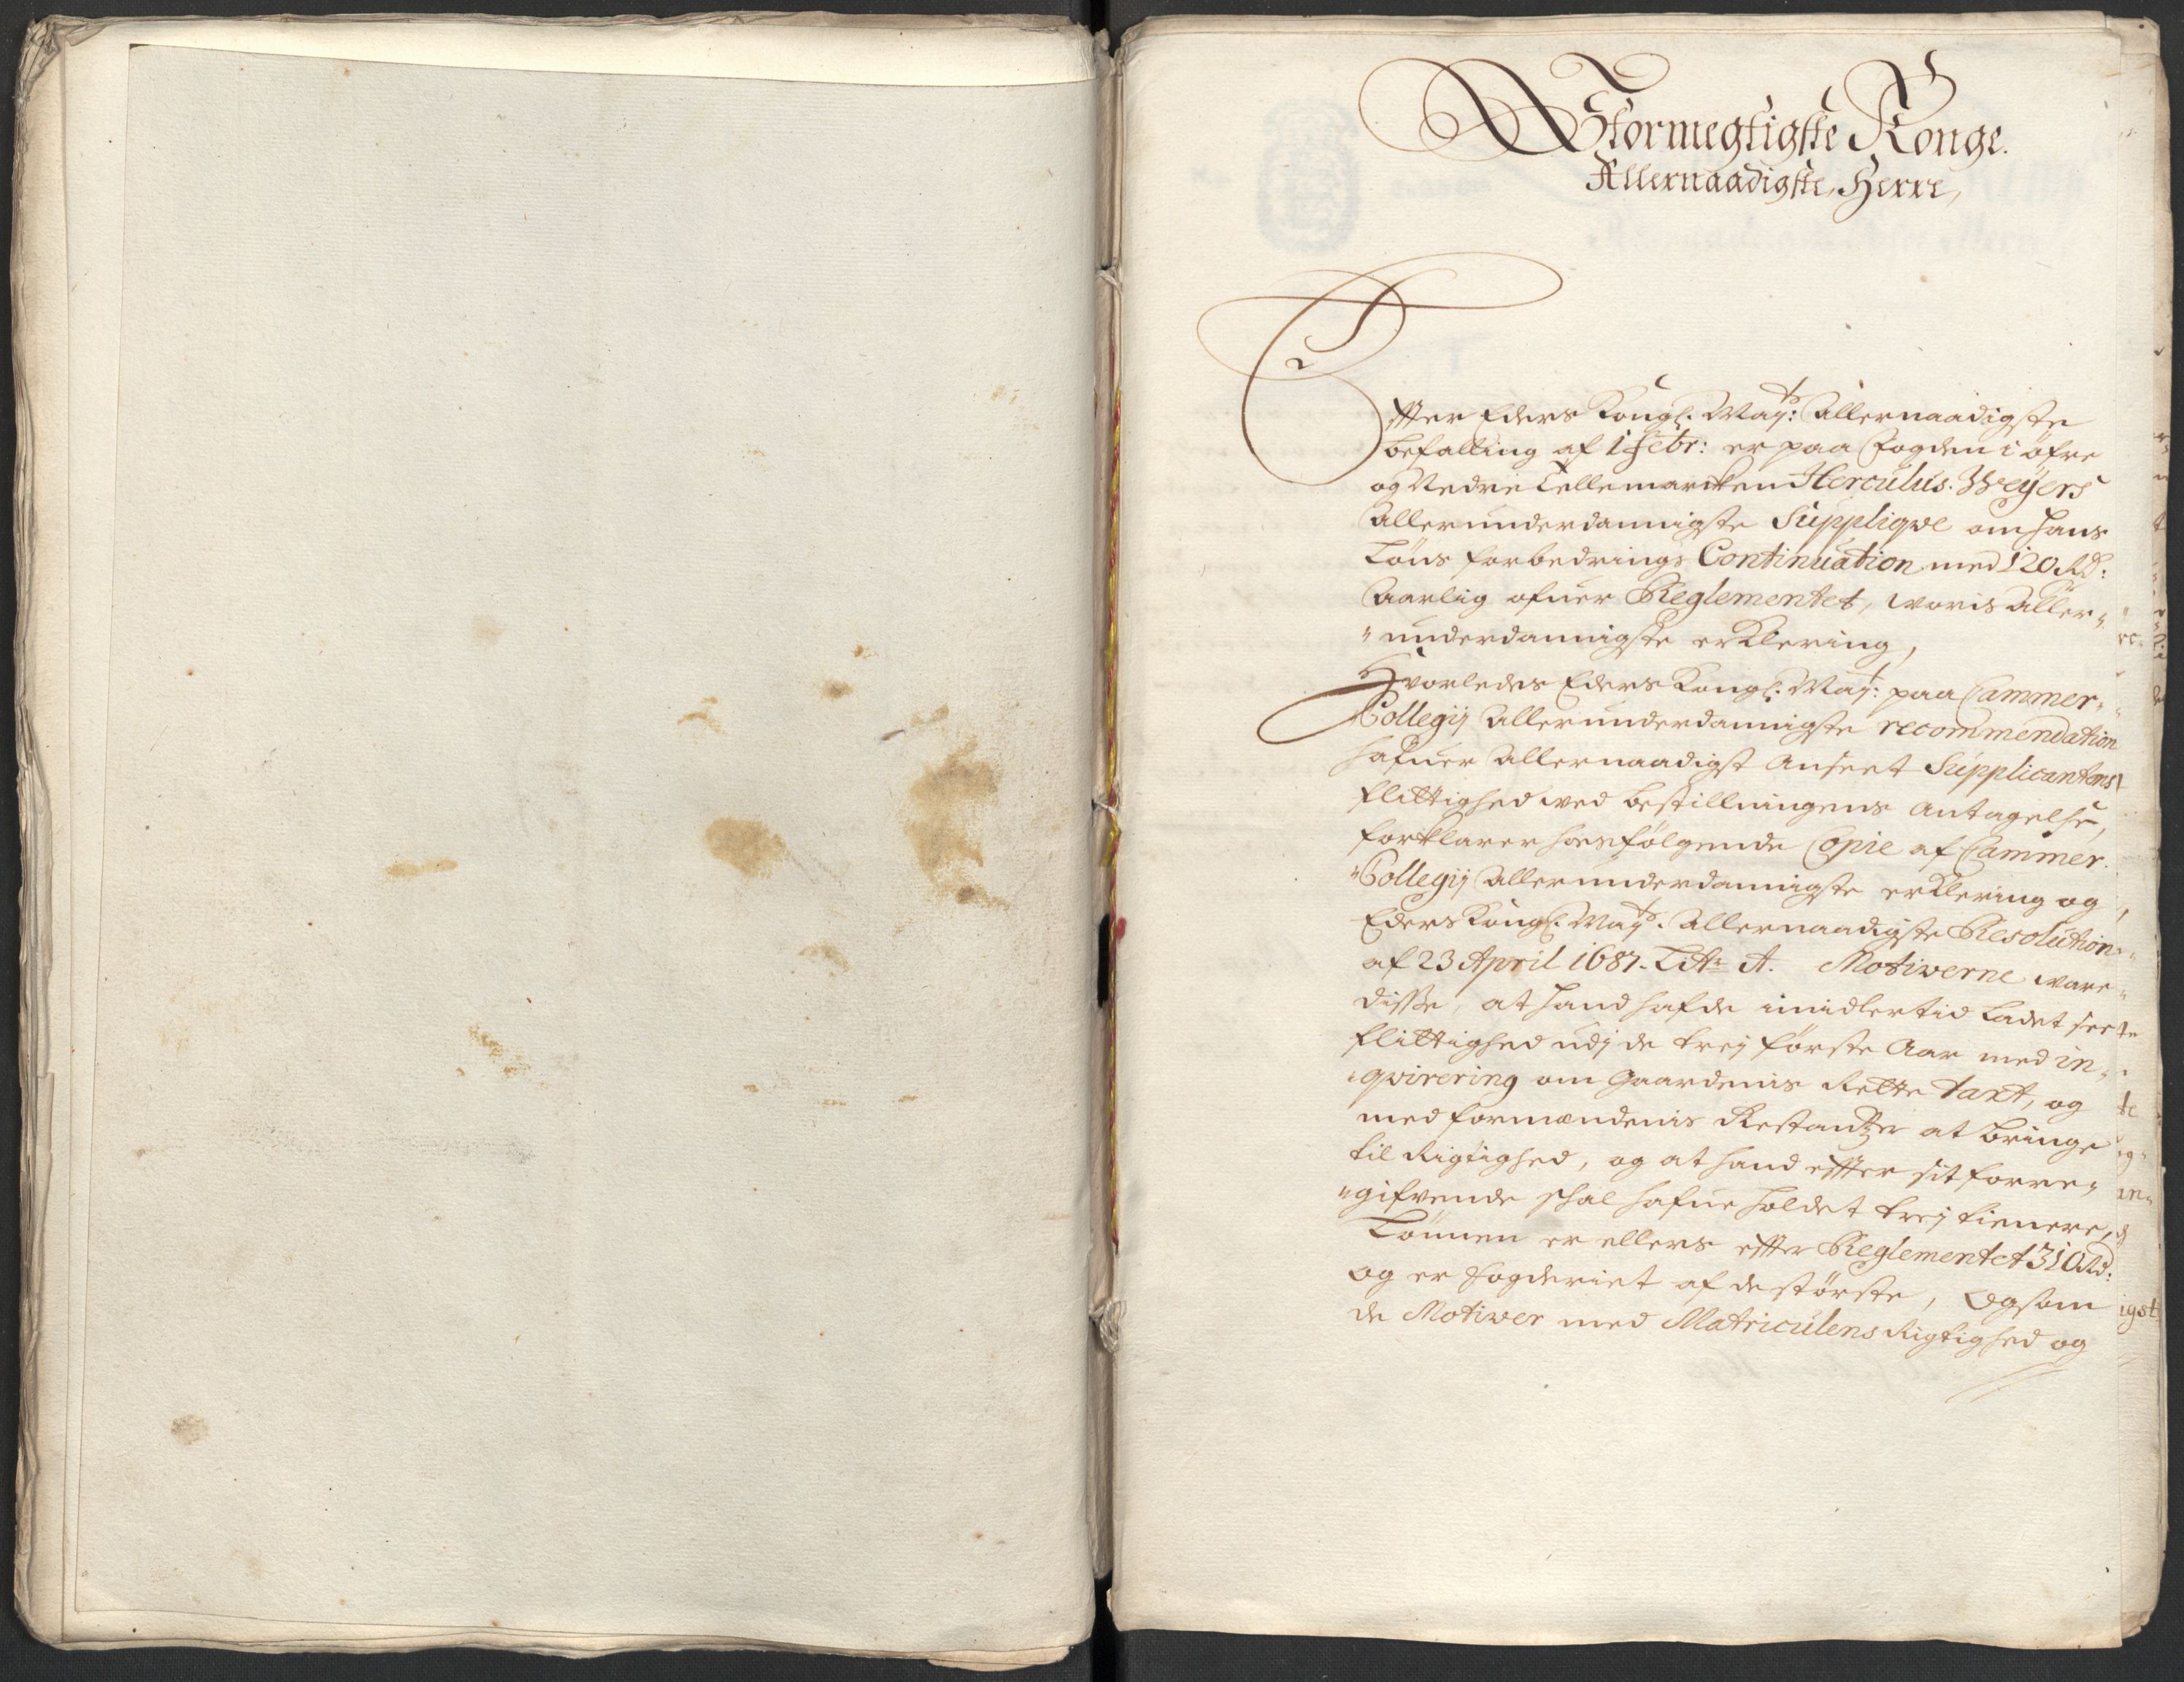 Stormegtigste Konge.
Allernaadigste, Herre,
Effter Eders Kongl. May.ts: Allernaadigste
befalling af 1 Febr: er paa Fogden i öfre
og Nedre Tellemarcken Herculus. Weyers
Allerunderdannigste Suppliqve om hans
Löns forbedrings Continuation med 120 Rd:
Aarlig ofuer Reglementet, woris Aller„
„underdannigste erklering,
Hvorledes Eders Kongl. May.t: paa Cammer„
Collegij Allerunderdannigste recommendation
hafuer Allernaadigst Anseet Supplicantens
flittighed ved bestillningens Antagelse,
forklarer hosfölgende Copie af Cammer.
„Collegij Allerunderdannigste erklering og
Eders Kongl. May.ts. Allernaadigste Resolution
af 23 April 1687. Litr: A. Motiverne ware
disse, at hand hafde imidlertid Ladet see
flittighed udj de trej förste Aar med in„
„qvirering om Gaardenis Rette taxt, og
med formændenis Restantzer at bringe
til Rigtighed, og at hand effter sit forre„
„gifvende skal hafue holdet trej tienere,
Lönnen er ellers effter Reglementet 310 Rd:
og er fogderiet af de störste, Ogsom
de Motiver med Matriculens Rigtighed og